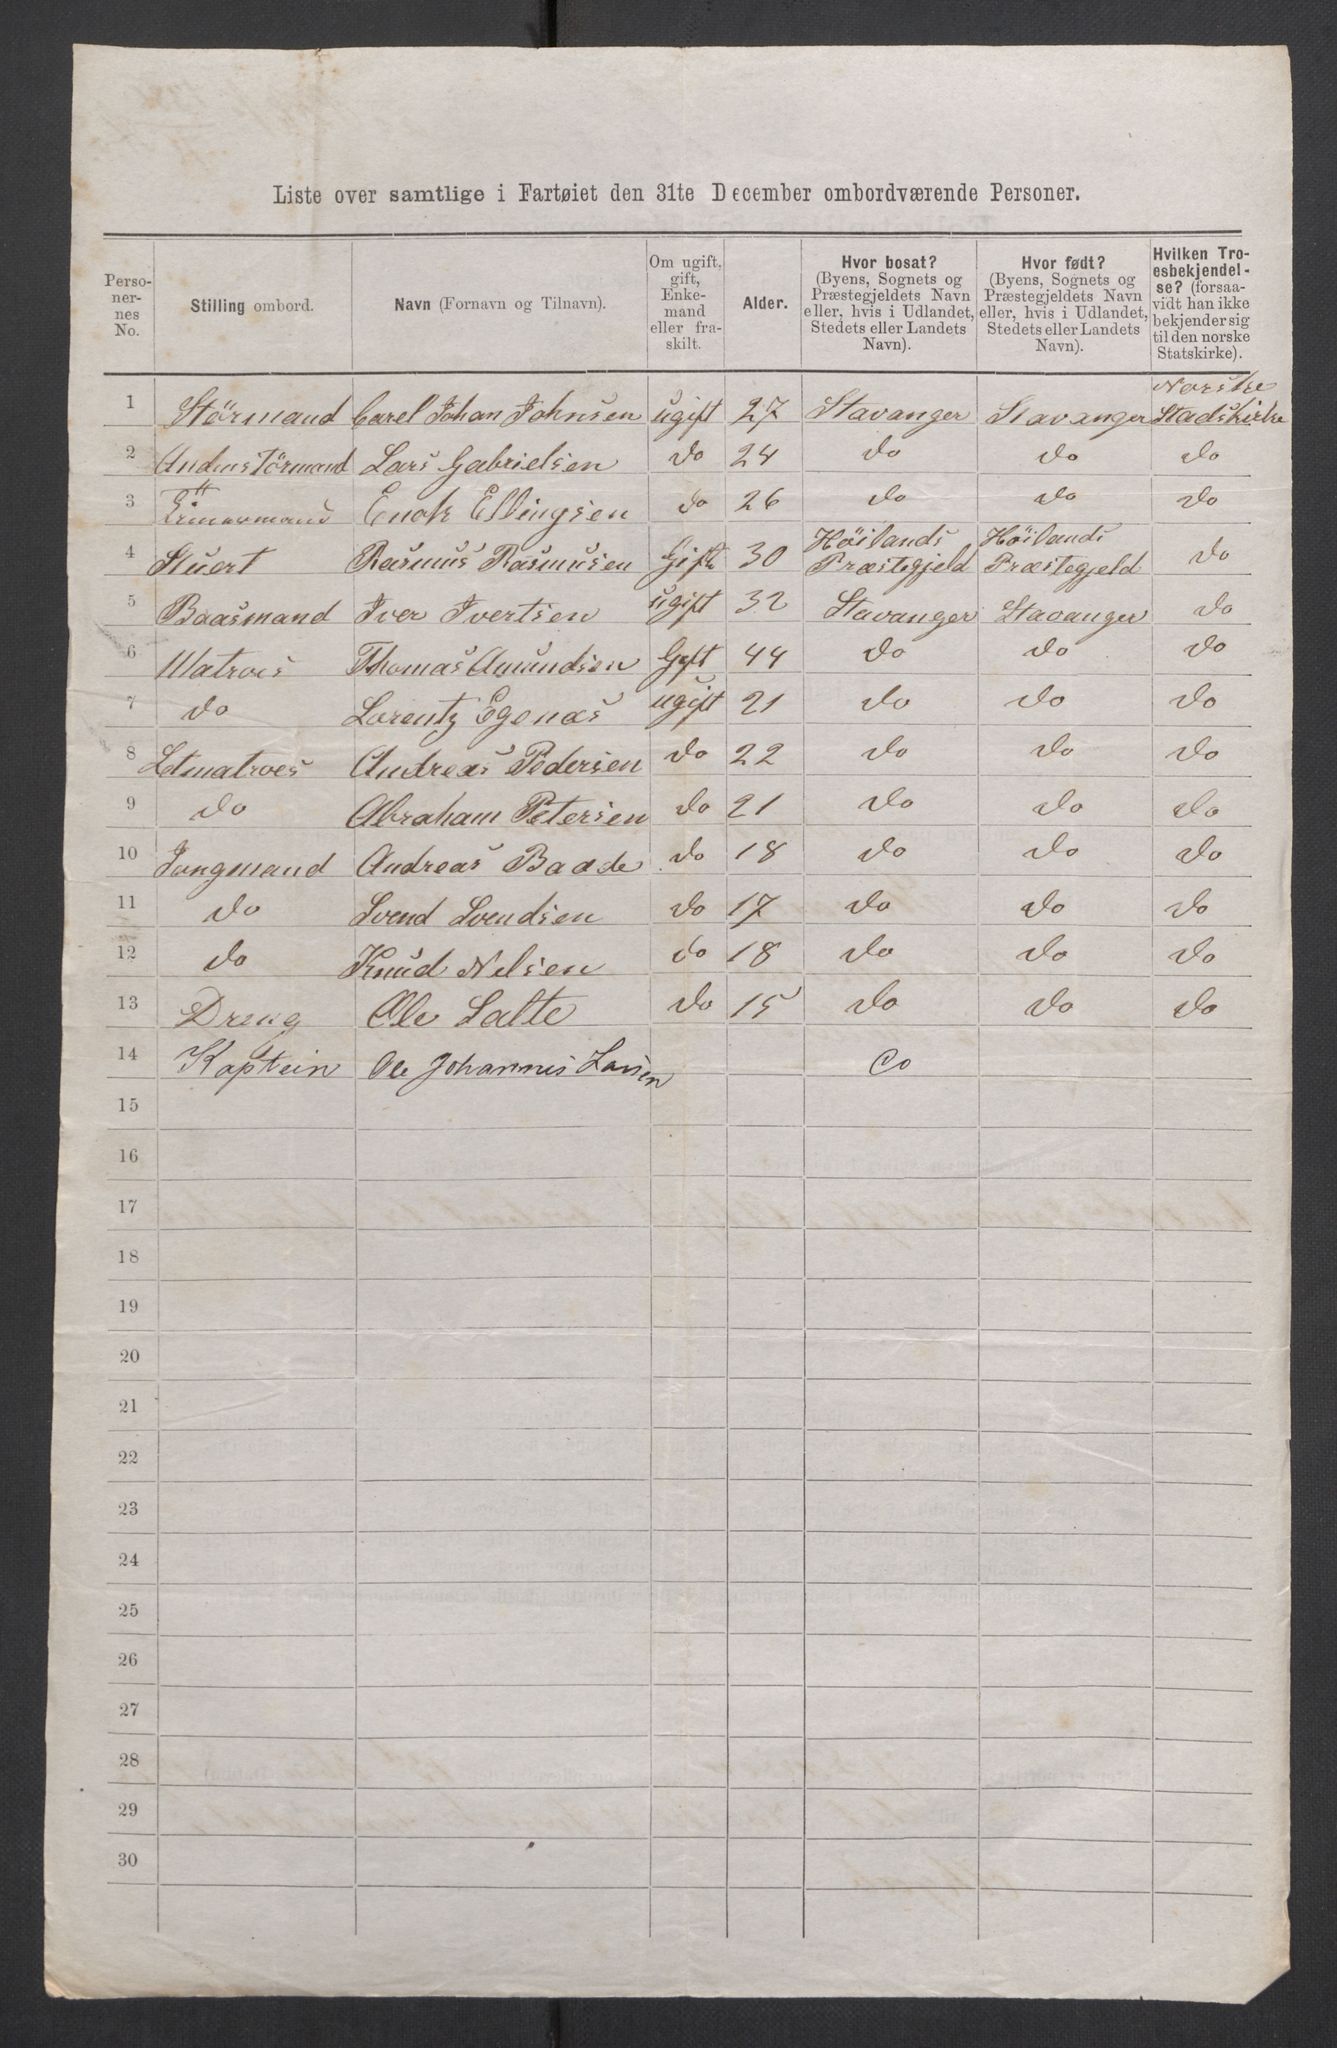 Liste over samtlige i Fartøiet den 31te December ombordværende Personer.
Perso-
ner-
nes
No.
Stilling ombord.
Navn (Fornavn og Tilnavn).
Om ugift,
gift,
Enke-
mand
eller fra-
skilt.
Alder.
Hvor bosat?
(Byens, Sognets og
Præstegjeldets Navn
eller, hvis i Udlandet,
Stedets eller Landets
Navn).
Hvor født?
(Byens, Sognets og
Præstegjeldets Navn
eller, hvis i Udlandet,
Stedets eller Landets
Navn).
Hvilken Tro-
esbekjendel-
se? (forsaa-
vidt han ikke
bekjender sig
til den norske
Statskirke).
1 Störmand Carel Johan Johnsen ugift 27 Stavanger Stavanger Norske Stadskirke
2 Andenstörmand Lars Gabrielsen do 24 do do do
3 Enok Ellingsen do 26 do do do
4 Stuert Rasmus Rasmusen Gift 30 Höilands Præstegjeld Höilands Præstegjeld do
5 Baasmand Iver Ivertsen ugift 32 Stavanger Stavanger do
6 Matroes Thomas Amundsen Gift 44 do do do
7 do Lorentz Egenæs ugift 21 do do do
8 Letmatroes Andreas Pedersen do 22 do do do
9 do Abraham Petersen do 21 do do do
10 Jongmand Andreas Baade do 18 do do do
11 do Svend Svendsen do 17 do do do
12 do Knud Nelsen do 18 do do do
13 Dreng Ole Salte do 15 do do do
14 Kaptein Ole Johannis Larsen do
15
16
17
18
19
20
21
22
23
24
25
26
27
28
29
30